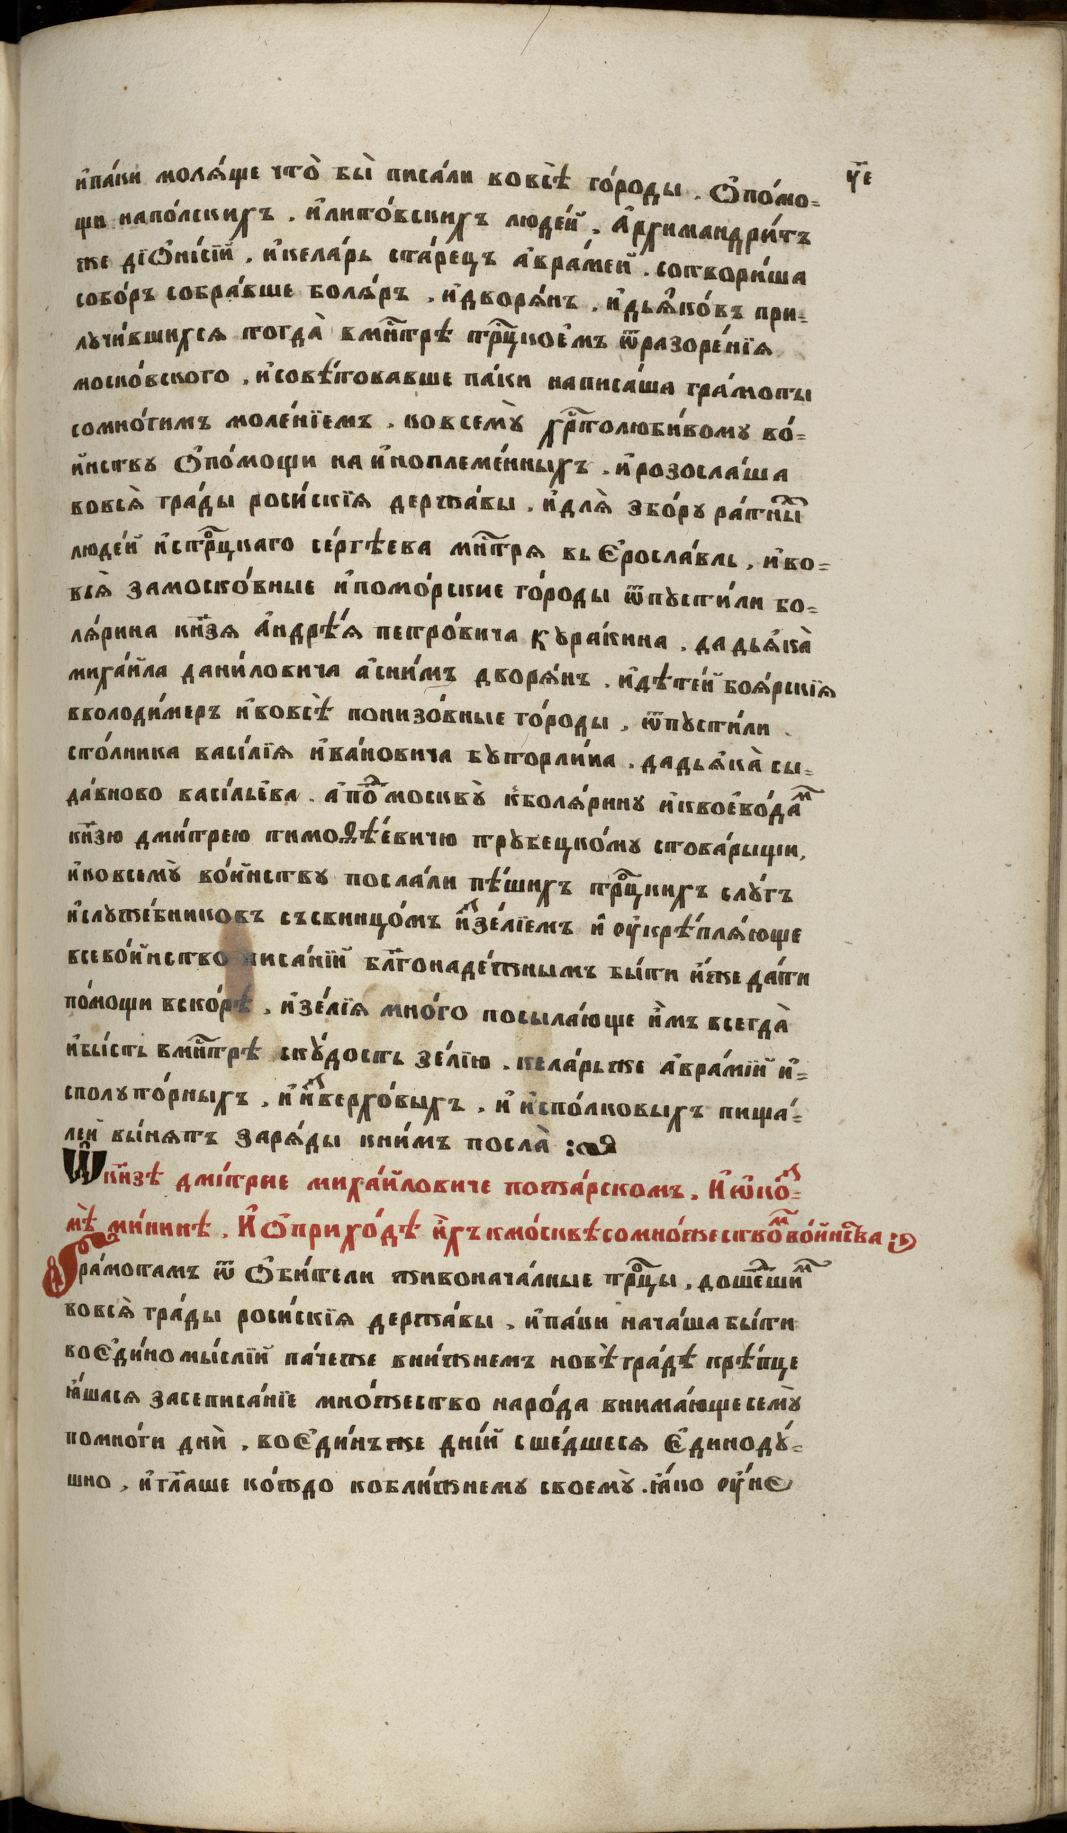 чє҃
и҆па́ки молѧ́ще что̀ бы̀ писа́ли вовсѣ̀ го́роды . Ѻ҆по́мо-
щи наполскихъ , и҆лито́вскихъ люде́й , А҆рхимандри́тъ
же дїѺни́сїй , и҆кела́рь ста́рецъ а҆вра́мей . сотвори́ша
собо́ръ собра́вше болѧ́ръ , и҆дворѧ́нъ , и҆дьѧко́въ при-
лучи́вшихсѧ тогда̀ вмн҃трѣ трⷪ҇цкое́мъ ѿразоре́нїѧ
моско́вского , и҆совѣ́товавше па́ки написа́ша гра́моты
сомно́гимъ моле́нїемъ . ковсемꙋ̀ хрⷭ҇толюби́вомꙋ во́-
инствꙋ Ѻ҆по́мощи на и҆ноплеме́нныхъ . и҆розосла́ша
вовсѧ̀ гра́ды роси́скїѧ держа́вы . и҆длѧ̀ збо́рꙋ ра́тныⷯ
люде́й и҆стрⷪ҇цкаго се́ргѣева мн҃трѧ въ Є҆росла́вль , и҆во-
всѧ̀ замоско́вные и҆помо́рские го́роды ѿпꙋсти́ли бо-
лѧ́рина кн҃зѧ А҆ндрѣ́ѧ петро́вича Кꙋра́кина . да дьѧка̀
миха́йла дани́ловича а҆сни́мъ дворѧ́нъ . и҆дѣте́й боѧ́рскїѧ
вволоди́меръ и҆вовсѣ̀ понизо́вные го́роды , ѿпꙋсти́ли
сто́лника васи́лїѧ и҆ва́новича бꙋтꙋрли́на . дадьѧка̀ сы-
да́вново васи́льева . а҆поⷣ москвꙋ̀ к҆болѧ́ринꙋ и҆квоево́даⷨ
кн҃зю дми́трею тимоѳѣ́евичю трꙋбецко́мꙋ стова́рыщи ,
и҆ковсемꙋ̀ во́инствꙋ посла́ли пѣ́шихъ трⷪ҇цкихъ слꙋ́гъ
и҆слꙋже́бниковъ съсвинцо́мъ и҆зе́лїемъ и҆ ᲂу҆крѣплѧ́юще
всево́инство писа́нїй бл҃гонаде́жнымъ бы́ти и҆́же да́ти
по́мощи вско́рѣ , и҆зе́лїѧ мно́го посыла́юще и҆̀мъ всегда̀
и҆бы́сть вмн҃трѣ скꙋ́дость зе́лїю . кела́рьже а҆вра́мїй и҆-
сполꙋто́рныхъ , и҆ и҆ⷥверхо́выхъ , и҆ и҆спо́лковыхъ пища́-
лей вы́нѧтъ зарѧ́ды кни́мъ посла̀ :
Ѿ кн҃зѣ дми́трие миха́йловиче пожа́рскомъ . И҆ ѡ҆коⷥ-
мѣ̀ ми́нинѣ . И҆ Ѻ҆прихо́дѣ и҆́хъ кмо́сквѣсомно́жествоⷨ во́инства :
Гра́мотамъ ѿ Ѻ҆би́тели живонача́лные трⷪ҇цы , доше́дшиⷨ
вовсѧ̀ гра́ды роси́скїѧ держа́вы . и҆па́ки нача́ша бы́ти
воЄ҆ди́номы́слїй па́чеже вни́жнемъ новѣ̀гра́дѣ крѣ́пце
ꙗ҆́шасѧ засеписа́нїе мно́жество наро́да внима́юще семꙋ̀
помно́ги дни̂ , воЄ҆ди́нъже дні́й сше́дшесѧ Є҆динодꙋ́-
шно , и҆гл҃аше ко́ждо кобли́жнемꙋ своемꙋ̀ . ꙗ҆́ко ᲂу҆не